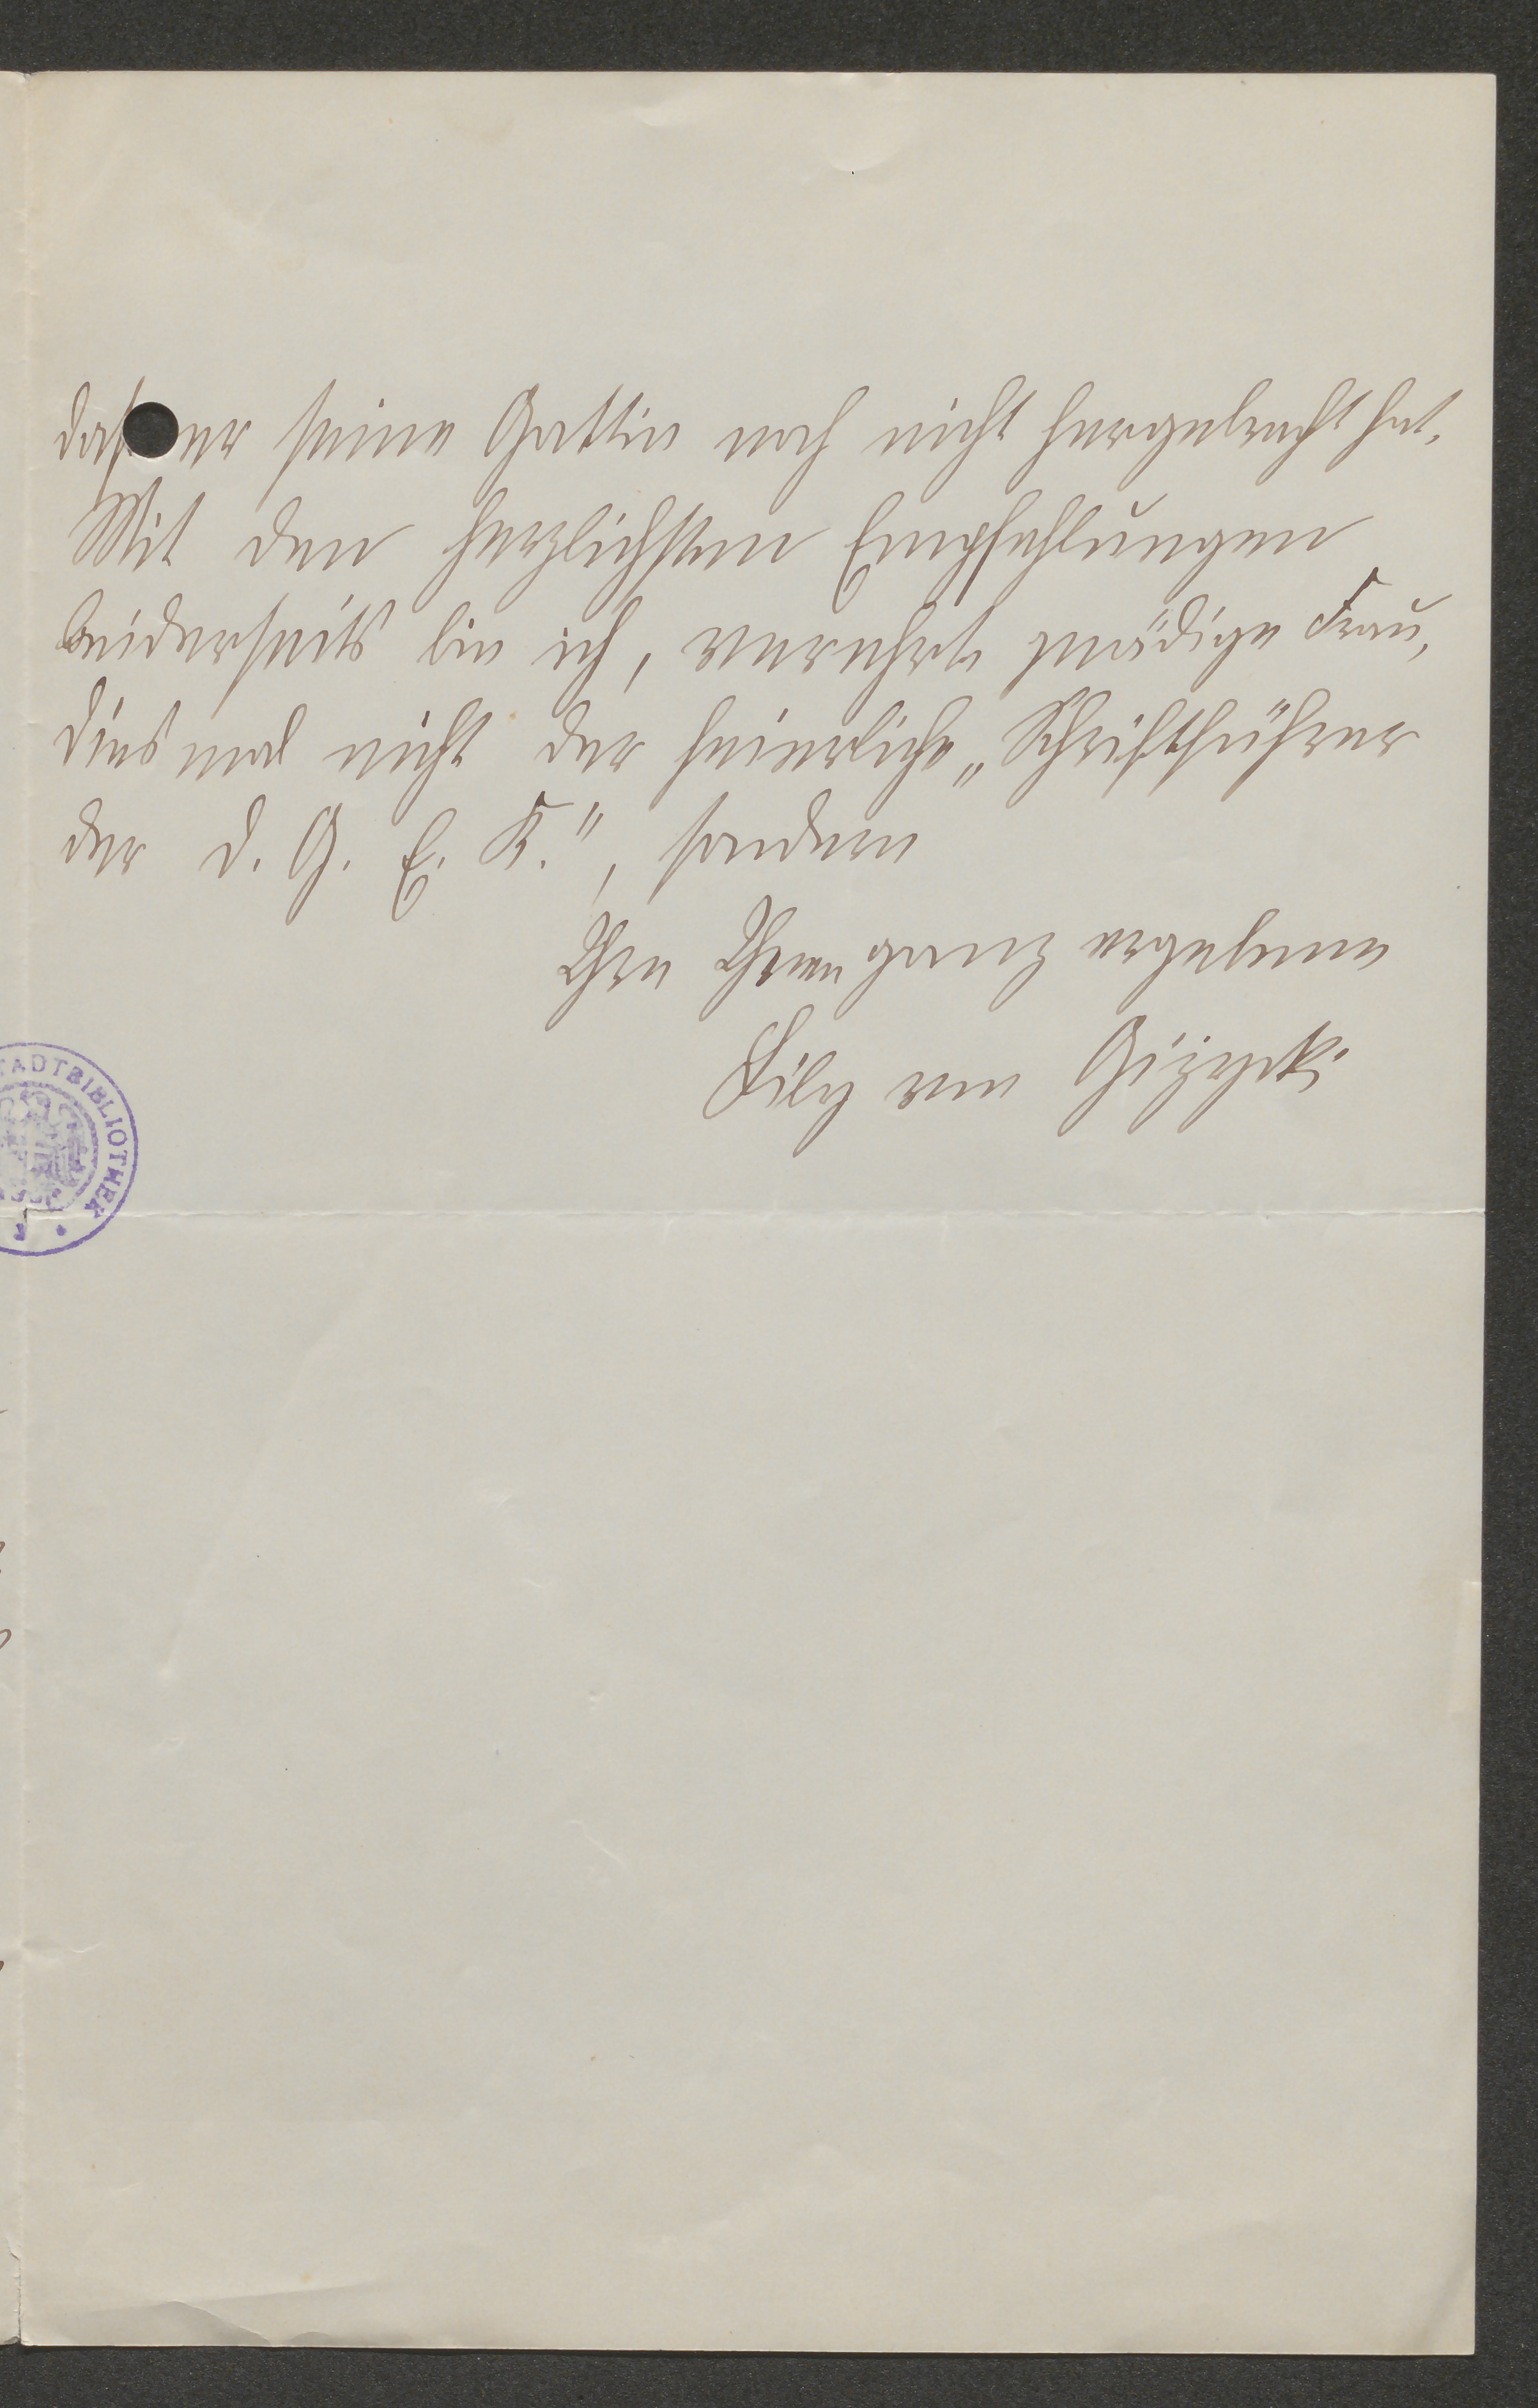 daß er seine Gattin noch nicht hergebracht hat.
Mit den herzlichsten Empfehlungen
beiderseits bin ich, verehrte gnädige Frau,
diesmal nicht der feierliche „Schriftführer
der D. G. E. K.", sondern
Ihre Ihnen ganz ergebene
Lily von Gizycki
STADTBIBLIOTHEK